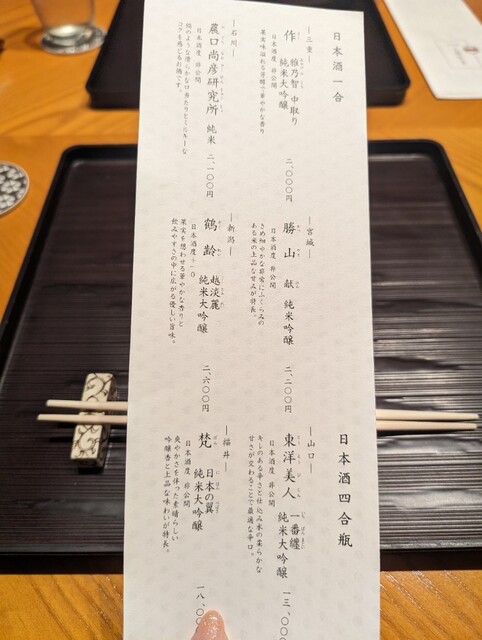 日本酒一合
―三重―
作 雅乃智 中取り
純米大吟醸
日本酒度 非公開
果実味溢れる芳醇で華やかな香り
二、〇〇〇円
―宮城―
勝山 献 純米吟醸
日本酒度 非公開
きめ細やかな非常にふくらみの
ある米の上品な甘みが特長。
二、二〇〇円
―石川―
農口尚彦研究所 純米
日本酒度 非公開
絹のような滑らかな口当たりとミルキーな
コクを感じるお酒です。
二、一〇〇円
―新潟―
鶴齢 越淡麗
純米大吟醸
日本酒度
果実を想わせる華やかな香りと
飲みやすさの中に広がる優しい旨味。
二、六〇〇円
日本酒四合瓶
―山口―
東洋美人 一番纏
純米大吟醸
日本酒度 非公開
キレのある辛さと仕込み米の柔らかな
甘さが交わることで最適な辛口。
一三、〇〇
―福井―
梵 日本の翼
純米大吟醸
日本酒度 非公開
爽やかさを伴った素晴らしい
吟醸香と上品な味わいが特長。
一八、〇